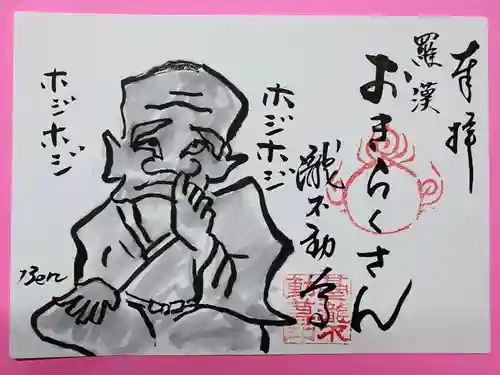 奉拝
羅漢
おきらくさん
瀧不動尊
ホジホジ
ホジホジ
Ben